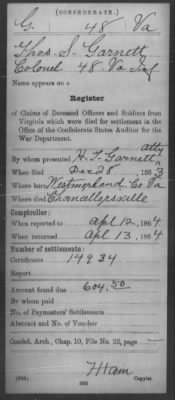 (CONFEDERATE.)
G. 48 Va
Thos. S. Garnett
Colonel 48 Va Inf
Name appears on a
Register
of Claims of Deceased Officers and Soldiers from
Virginia which were filed for settlement in the
Office of the Confederate States Auditor for the
War Department.
Atty
By whom presented H. T. Garnett
When filed Dec 28, 1863
Where born Westmoreland Co. Va
Where died Chancellorsville
Comptroller:
When reported to Apl 12, 1864
When returned Apl 13, 1864
Number of settlements:
Certificates 14934
Report
Amount found due 604.50
By whom paid
No. of Paymasters' Settlements
Abstract and No. of Voucher
Confed. Arch., Chap. 10, File No. 22, page
Ham
Copyist.